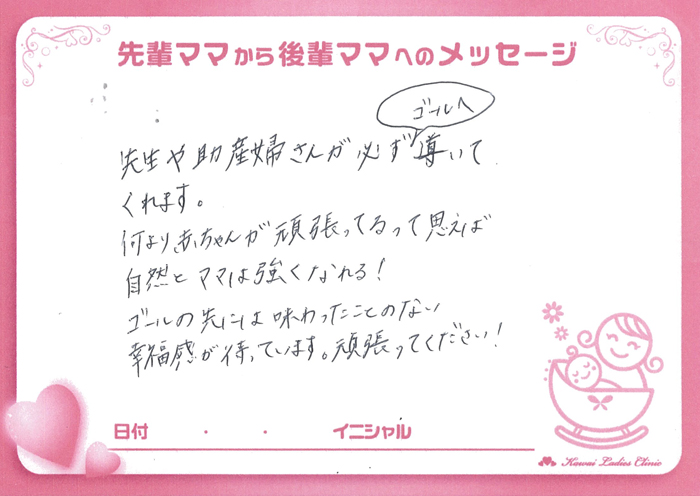 先輩ママから後輩ママへのメッセージ
ゴールへ
先生や助産婦さんが必ず導いて
くれます。
何より赤ちゃんが頑張ってるって思えば
自然とママは強くなれる!
ゴールの先には味わったことのない
幸福感が待っています。頑張ってください!
日付 ・ ・ イニシャル
Kawai Ladies Clinic